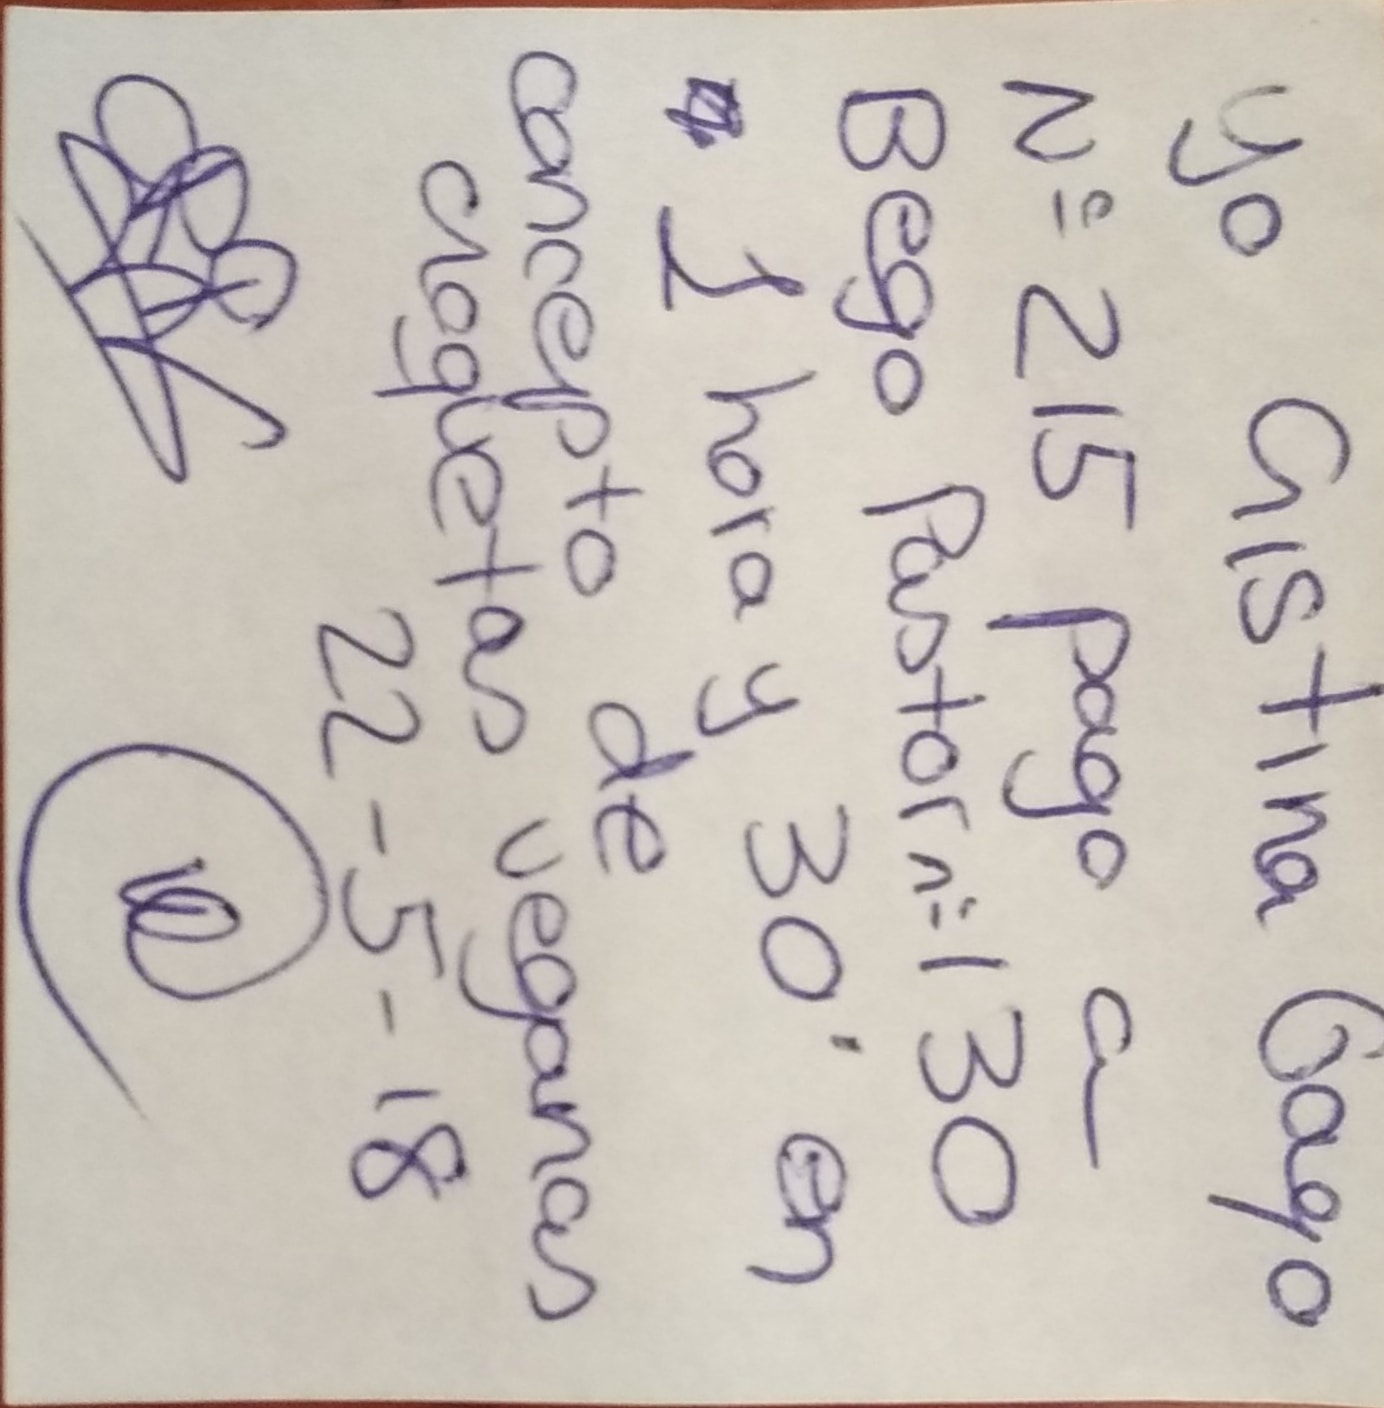 Yo Cristina Gago
Nº 215 pago a
Bego Pastor nº 130
1 hora y 30' en
concepto de
croquetas veganas
22-5-18